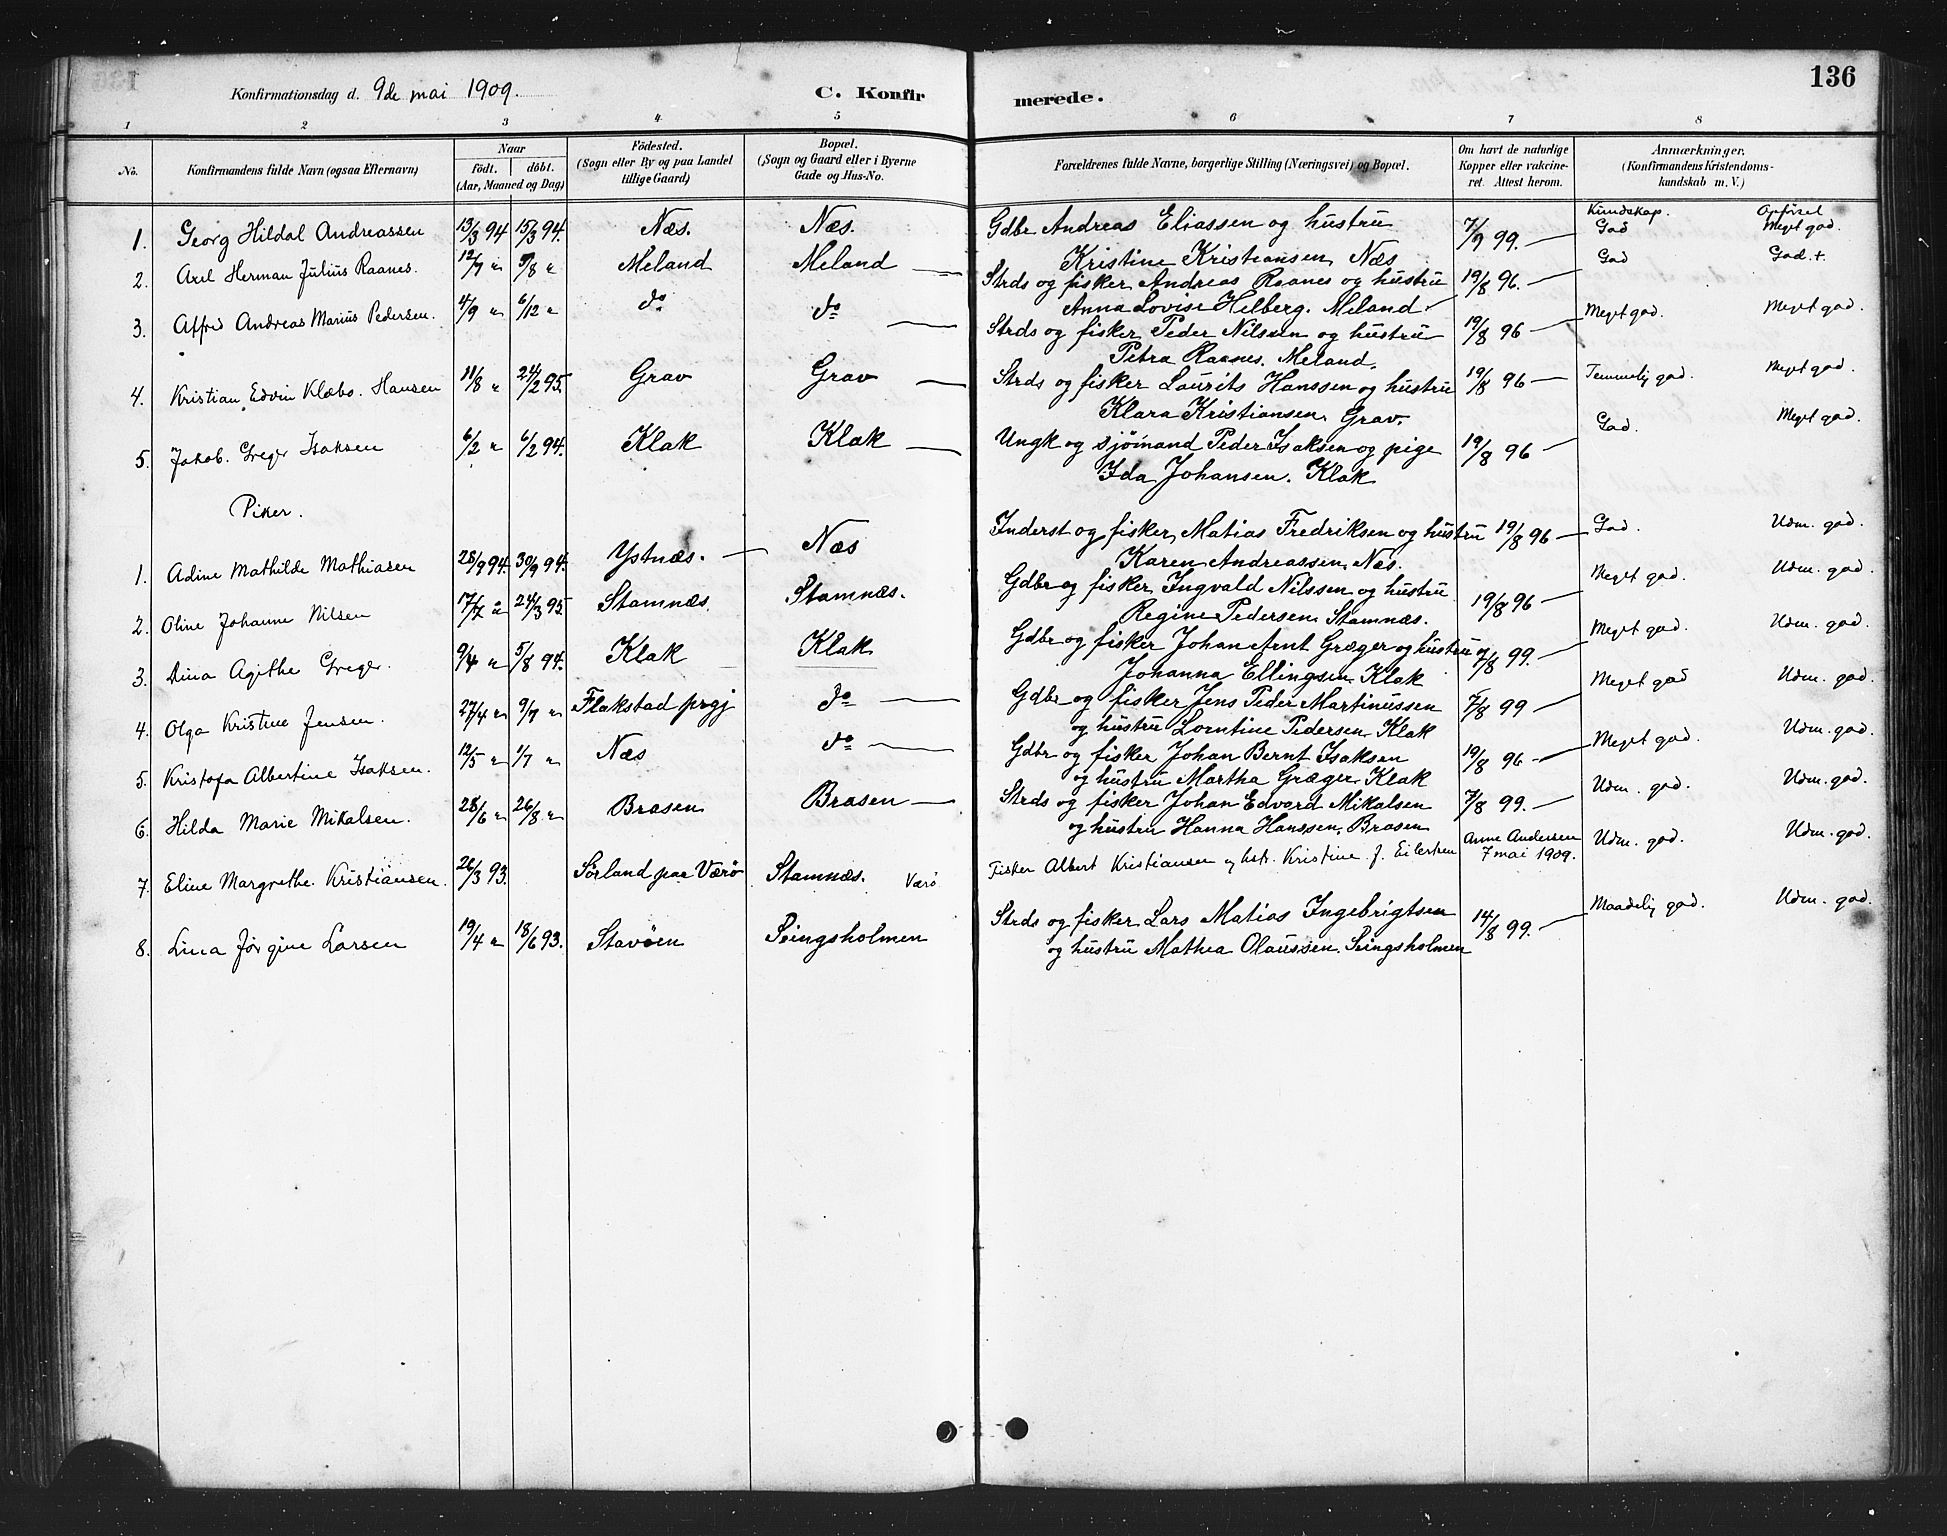 136
Konfirmationsdag d. 9de mai 1909. C. Konfirmerede.
1 2 3 4 5 6 7 8
No. Konfirmandens fulde Navn (ogsaa Efternavn) Naar født. døbt. (Aar, Maaned og Dag) Fødested. (Sogn eller By og paa Landet tillige Gaard) Bopæl. (Sogn og Gaard eller i Byerne Gade og Hus-No. Forældrenes fulde Navne, borgerlige Stilling (Næringsvei) og Bopæl. Om havt de naturlige Kopper eller vakcineret. Attest herom. Anmærkninger, (Konfirmandens Kristendomskundskab m. V.)
Kundskap. Opførsel
1. Georg Hildal Andreassen 13/3 94 15/3 94. Næs. Næs. Gdbr Andreas Eliassen og hustru 7/9 99. God Meget god.
Kristine Kristiansen, Næs
2. Axel Herman Julius Raanes. 12/7 " 5/8 " Meland Meland Strds og fisker Andreas Raanes og hustru 19/8 96. God God +
Anna Lovise Helberg. Meland
3. Alfred Andreas Marius Pedersen. 4/9 " 6/12 " do do Strds og fisker Peder Nilssen og hustru 19/8 96 Meget god. Meget god.
Petra Raanes. Meland.
4. Kristian Edvin Klæbo. Hansen 11/8 " 24/2 95. Grav Grav Strds og fisker Laurits Hanssen og hustru 19/8 96 Temmelig god. Meget god.
Klara Kristiansen, Grav.
5. Jakob. Greger Isaksen 6/2 " 6/2 94. Klak Klak Ungk og sjømand Peder Isaksen og pige 19/8 96 God. Meget god.
Ida Johansen. Klak
Piker.
1. Adine Mathilde Mathiasen 28/9 94. 30/9 94. Ystnæs. Næs Inderst og fisker, Matias Fredriksen og hustru 19/8 96 God. Udm. god.
Karen Andreassen, Næs.
2. Oline Johanne Nilsen 17/7 " 24/3 95 Stamnæs. Stamnæs. Gdbr og fisker, Ingvald Nilssen og hustru 19/8 96 Meget god. Udm. god.
Regine Pedersen, Stamnæs.
3. Dina Agithe Greger. 9/4 " 5/8 94. Klak Klak Gdbr og fisker Johan Arnt Græger og hustru 7/8 99. Meget god. Udm. god.
Johanna Ellingsen, Klak
4. Olga Kristine Jensen. 27/4 " 9/7 " Flakstad prgj do Gdbr og fisker Jens Peder Martinussen 7/8 99 Meget god Udm. god.
og hustru Lorntine Pedersen, Klak
5. Kristofa Albertine Isaksen. 12/5 " 1/7 " Næs do Gdbr og fisker Johan Bernt Isaksen 19/8 96 Meget god. Udm. god.
og hustru Martha Græger, Klak
6. Hilda Marie Mikalsen. 28/6 " 26/8 " Brasen Brasen Strds og fisker Johan Edvard Mikalsen 7/8 99. Udm. god. Udm. god.
og hustru Hanna Hanssen, Brasen
7. Eline Margrethe. Kristiansen. 26/3 93. Sørland paa Værø Stamnæs. Værø Fisker Albert Kristiansen og hstr. Kristine. J. Eilertsen Anne Andersen 7 mai 1909. Udm. god. Udm. god.
8. Lina Jørgine Larsen 19/4 " 18/6 93. Stavøen Svingsholmen Strds og fisker Lars Matias Ingebrigtsen 14/8 99. Maadelig god. Udm. god.
og hustru Mathea Olaussen. Svingsholmen